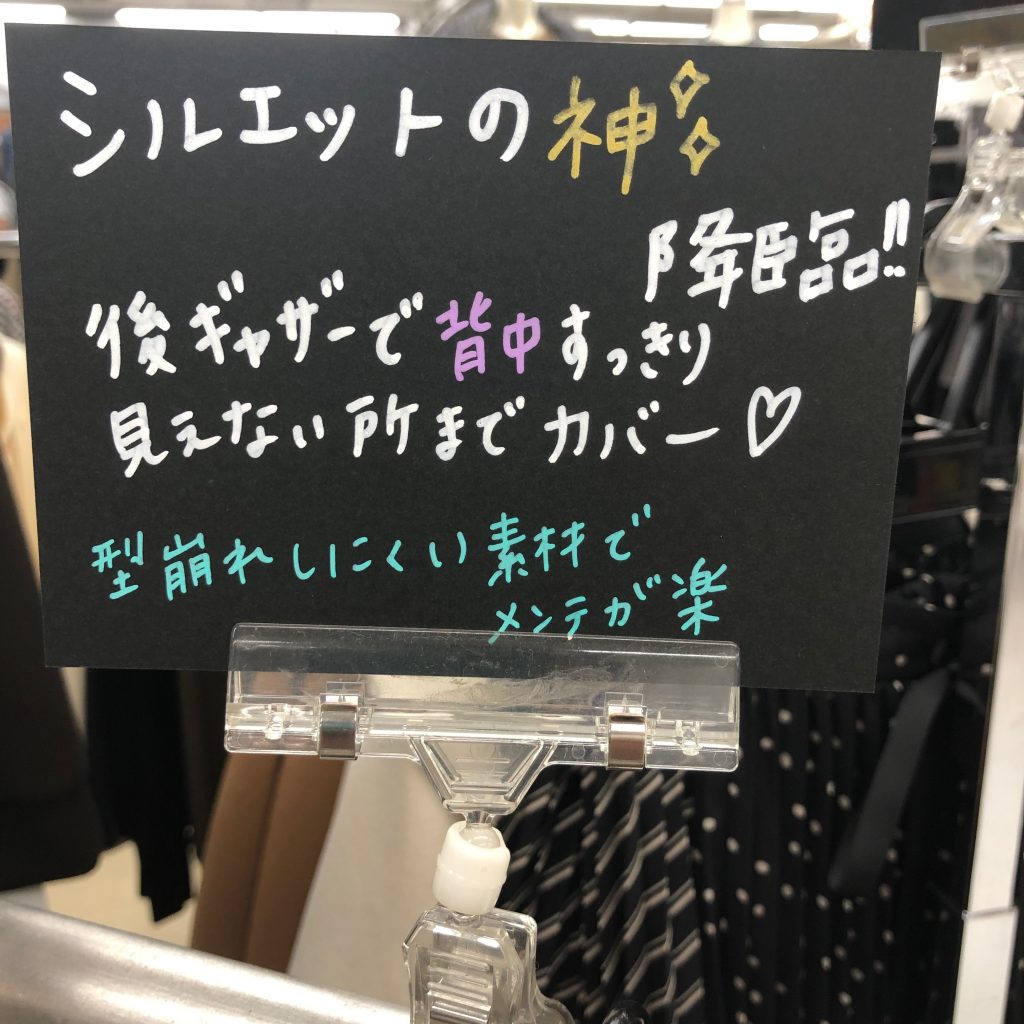 シルエットの神
降臨!!
後ギャザーで背中すっきり
見えない所までカバー♡
型崩れしにくい素材で
メンテが楽